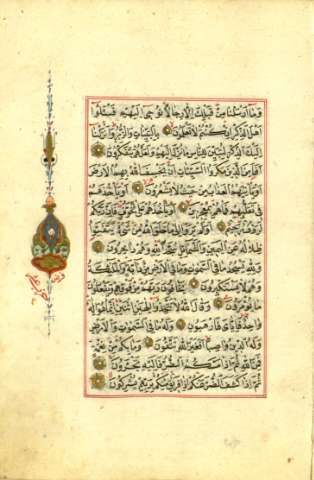 وَمَا اَرْسَلْنَا مِنْ قَبْلِكَ اِلَّا رِجَالًا نُوحِي اِلَيْهِمْ فَسْـَٔلُوا
اَهْلَ الذِّكْرِ اِنْ كُنْتُمْ لَا تَعْلَمُونَ بِالْبَيِّنَاتِ وَالزُّبُرِ وَاَنْزَلْنَا
اِلَيْكَ الذِّكْرَ لِتُبَيِّنَ لِلنَّاسِ مَا نُزِّلَ اِلَيْهِمْ وَلَعَلَّهُمْ يَتَفَكَّرُونَ
اَفَاَمِنَ الَّذِينَ مَكَرُوا السَّيِّئَاتِ اَنْ يَخْسِفَ اللهُ بِهِمُ الْاَرْضَ
اَوْ يَأْتِيَهُمُ الْعَذَابُ مِنْ حَيْثُ لَا يَشْعُرُونَ اَوْ يَأْخُذَهُمْ
فِي تَقَلُّبِهِمْ فَمَا هُمْ بِمُعْجِزِينَ اَوْ يَأْخُذَهُمْ عَلَى تَخَوُّفٍ فَاِنَّ رَبَّكُمْ
لَرَؤُفٌ رَحِيمٌ اَوَلَمْ يَرَوْا اِلَى مَا خَلَقَ اللهُ مِنْ شَيْءٍ يَتَفَيَّؤُا
ظِلَالُهُ عَنِ الْيَمِينِ وَالشَّمَائِلِ سُجَّدًا لِلّٰهِ وَهُمْ دَاخِرُونَ
وَلِلّٰهِ يَسْجُدُ مَا فِي السَّمٰوَاتِ وَمَا فِي الْاَرْضِ مِنْ دَابَّةٍ وَالْمَلٰئِكَةُ
وَهُمْ لَا يَسْتَكْبِرُونَ يَخَافُونَ رَبَّهُمْ مِنْ فَوْقِهِمْ وَيَفْعَلُونَ
مَا يُؤْمَرُونَ وَقَالَ اللهُ لَا تَتَّخِذُوا اِلٰهَيْنِ اثْنَيْنِ اِنَّمَا هُوَ اِلٰهٌ
وَاحِدٌ فَاِيَّايَ فَارْهَبُونِ وَلَهُ مَا فِي السَّمٰوَاتِ وَالْاَرْضِ
وَلَهُ الدِّينُ وَاصِبًا اَفَغَيْرَ اللهِ تَتَّقُونَ وَمَا بِكُمْ مِنْ نِعْمَةٍ
فَمِنَ اللهِ ثُمَّ اِذَا مَسَّكُمُ الضُّرُّ فَاِلَيْهِ تَجْـَٔرُونَ
ثُمَّ اِذَا كَشَفَ الضُّرَّ عَنْكُمْ اِذَا فَرِيقٌ مِنْكُمْ بِرَبِّهِمْ يُشْرِكُونَ